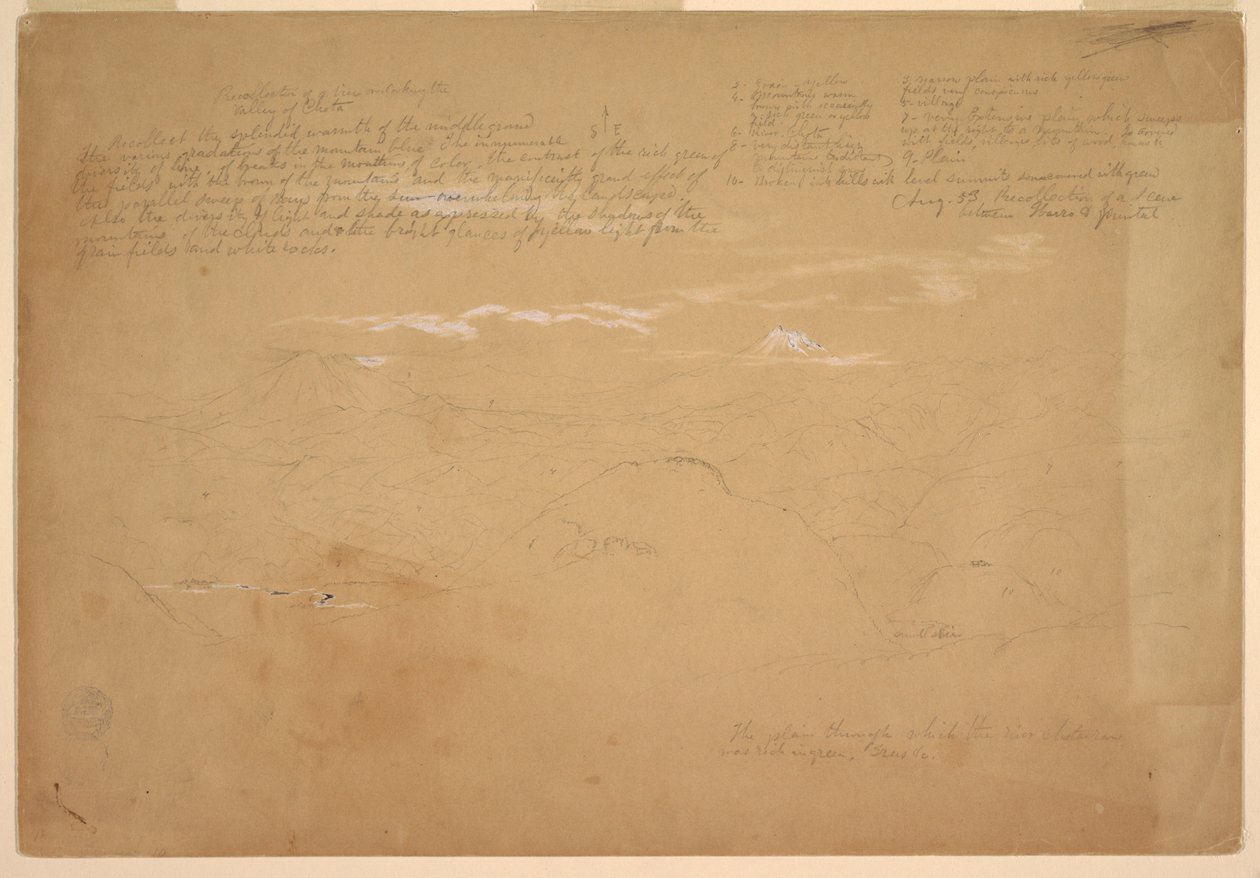 Recollection of a View overlooking the
Valley of Chota
Recollect the splendid warmth of the middle ground
The various gradations of the mountain blue. The innumerable
diversity of line of peaks in the mountains of color, the contrast of the rich green of
the fields with the brown of the mountains and the magnificently grand effect of
the parallel sweep of rays from the sun overwhelming the landscape.
Also the diversity of light and shade as expressed by the shadows of the
mountains of the clouds and the bright glances of yellow light from the
grain fields and white rocks.
S E
2- Grain - yellow
4- Mountains warm
brown pink occasionally
rich green or yellow
field.
6- River Chota
8- very distant hills
mountains too distant
to distinguish
10- Broken hills with level summits covered with green
3 narrow plain with rich yellow green
fields very conspicuous
5- village
7- very Extensive plain which sweeps
up at the right to a mountain, is covered
with fields, villages, bits of wood,
9. Plain
Aug. 53 Recollection of a Scene
between Ibarra & Puntal
9
4
4
4
7
7
10
10
small
The plain through which the river Chota ran
was rich in green, Trees &c.